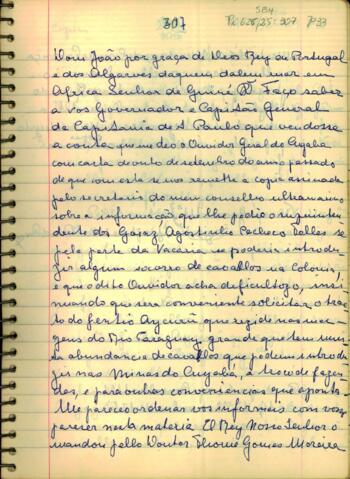 307
SB4
Pt 626/25: 307 P33
Dom João por graça de Deos Rey de Portugal
e dos Algarves daquem dalem mar em
Africa Senhor de Guiné &. Faço saber
a vós Governador e Capitão General
da Capitania de S. Paulo que vendosse
a conta que me deo o Ouvidor Geral do Cuyabá
com carta de outo de setembro do anno passado
de que com esta se vos remette a copia assinada
pelo secretario do meu conselho ultramarino
sobre a informação que lhe pedio o superinten
dente dos Goyaz Agostinho Pacheco Telles se
pela parte da Vacaria se poderia introdu
zir algum socorro de cavallos na Colonia,
e que o dito Ouvidor acha deficultozo, insi
nuando que sera conveniente solicitar o trac
to do gentio Aycurú que rezide nas mar
gens do Rio Paraguay grande que tem mui
ta abundancia de cavallos que podem introdu
zir nas Minas do Cuyabá, a troco de fazen
das, e para outras conveniencias que aponta
Me pareceo ordenar vos informeis com vosso
parecer nesta materia. El Rey Nosso Senhor o
mandou pello Doutor Thomé Gomes Moreira